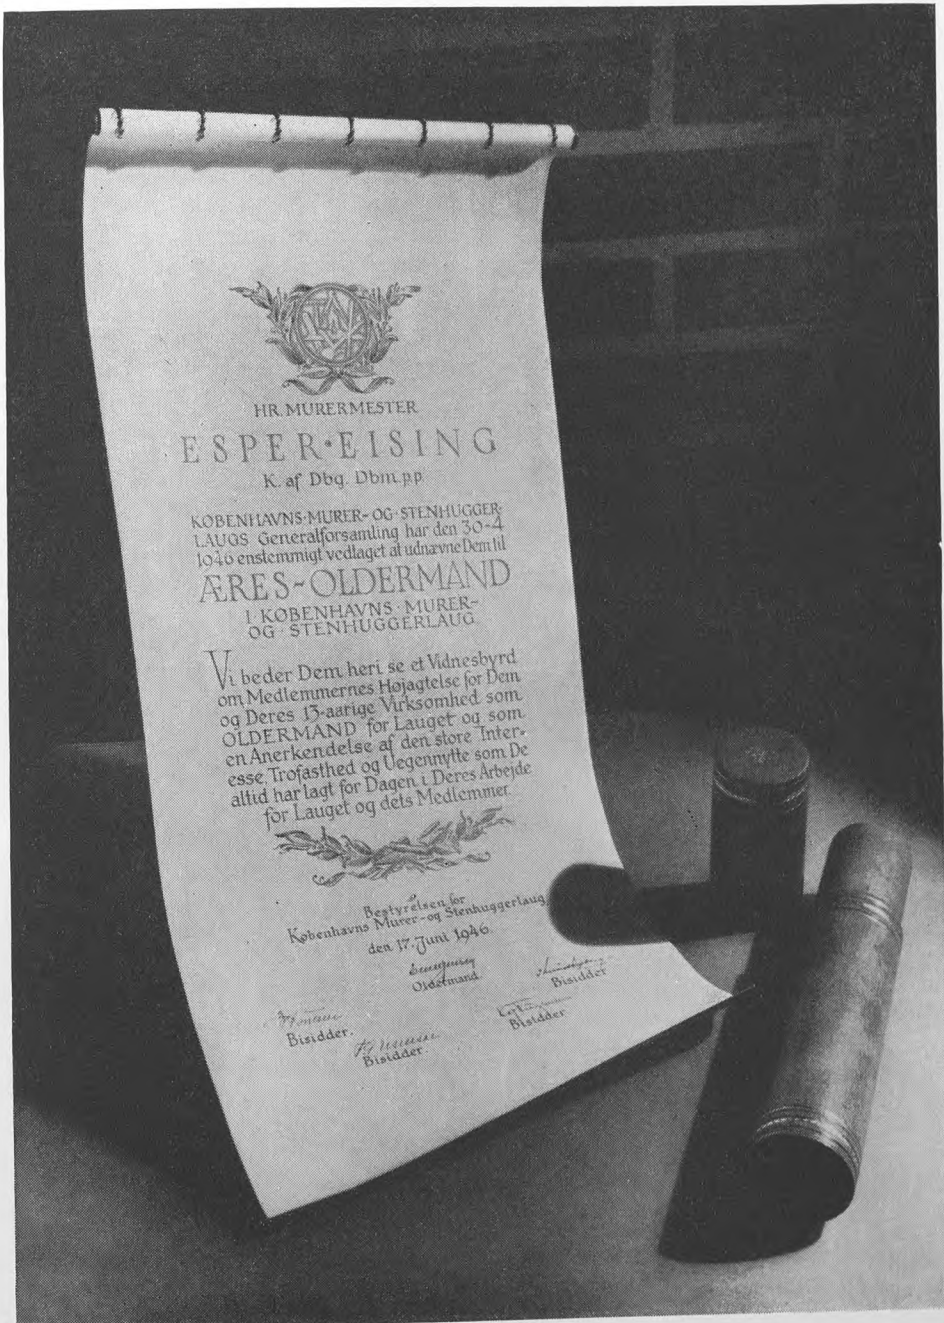 HR. MURERMESTER
ESPER·EISING
K. af Dbg. Dbm. p.p.
KØBENHAVNS·MURER- OG·STENHUGGER-
LAUGS Generalforsamling har den 30-4
1946 enstemmigt vedtaget at udnævne Dem til
ÆRES-OLDERMAND
I·KØBENHAVNS·MURER-
OG·STENHUGGERLAUG.
Vi beder Dem heri se et Vidnesbyrd
om Medlemmernes Højagtelse for Dem
og Deres 13-aarige Virksomhed som
OLDERMAND for Lauget og som
en Anerkendelse af den store Inter-
esse, Trofasthed og Uegennytte som De
altid har lagt for Dagen i Deres Arbejde
for Lauget og dets Medlemmer.
Bestyrelsen for
Københavns Murer- og Stenhuggerlaug
den 17. Juni 1946.
Oldermand
Bisidder
Bisidder.
Bisidder.
Bisidder